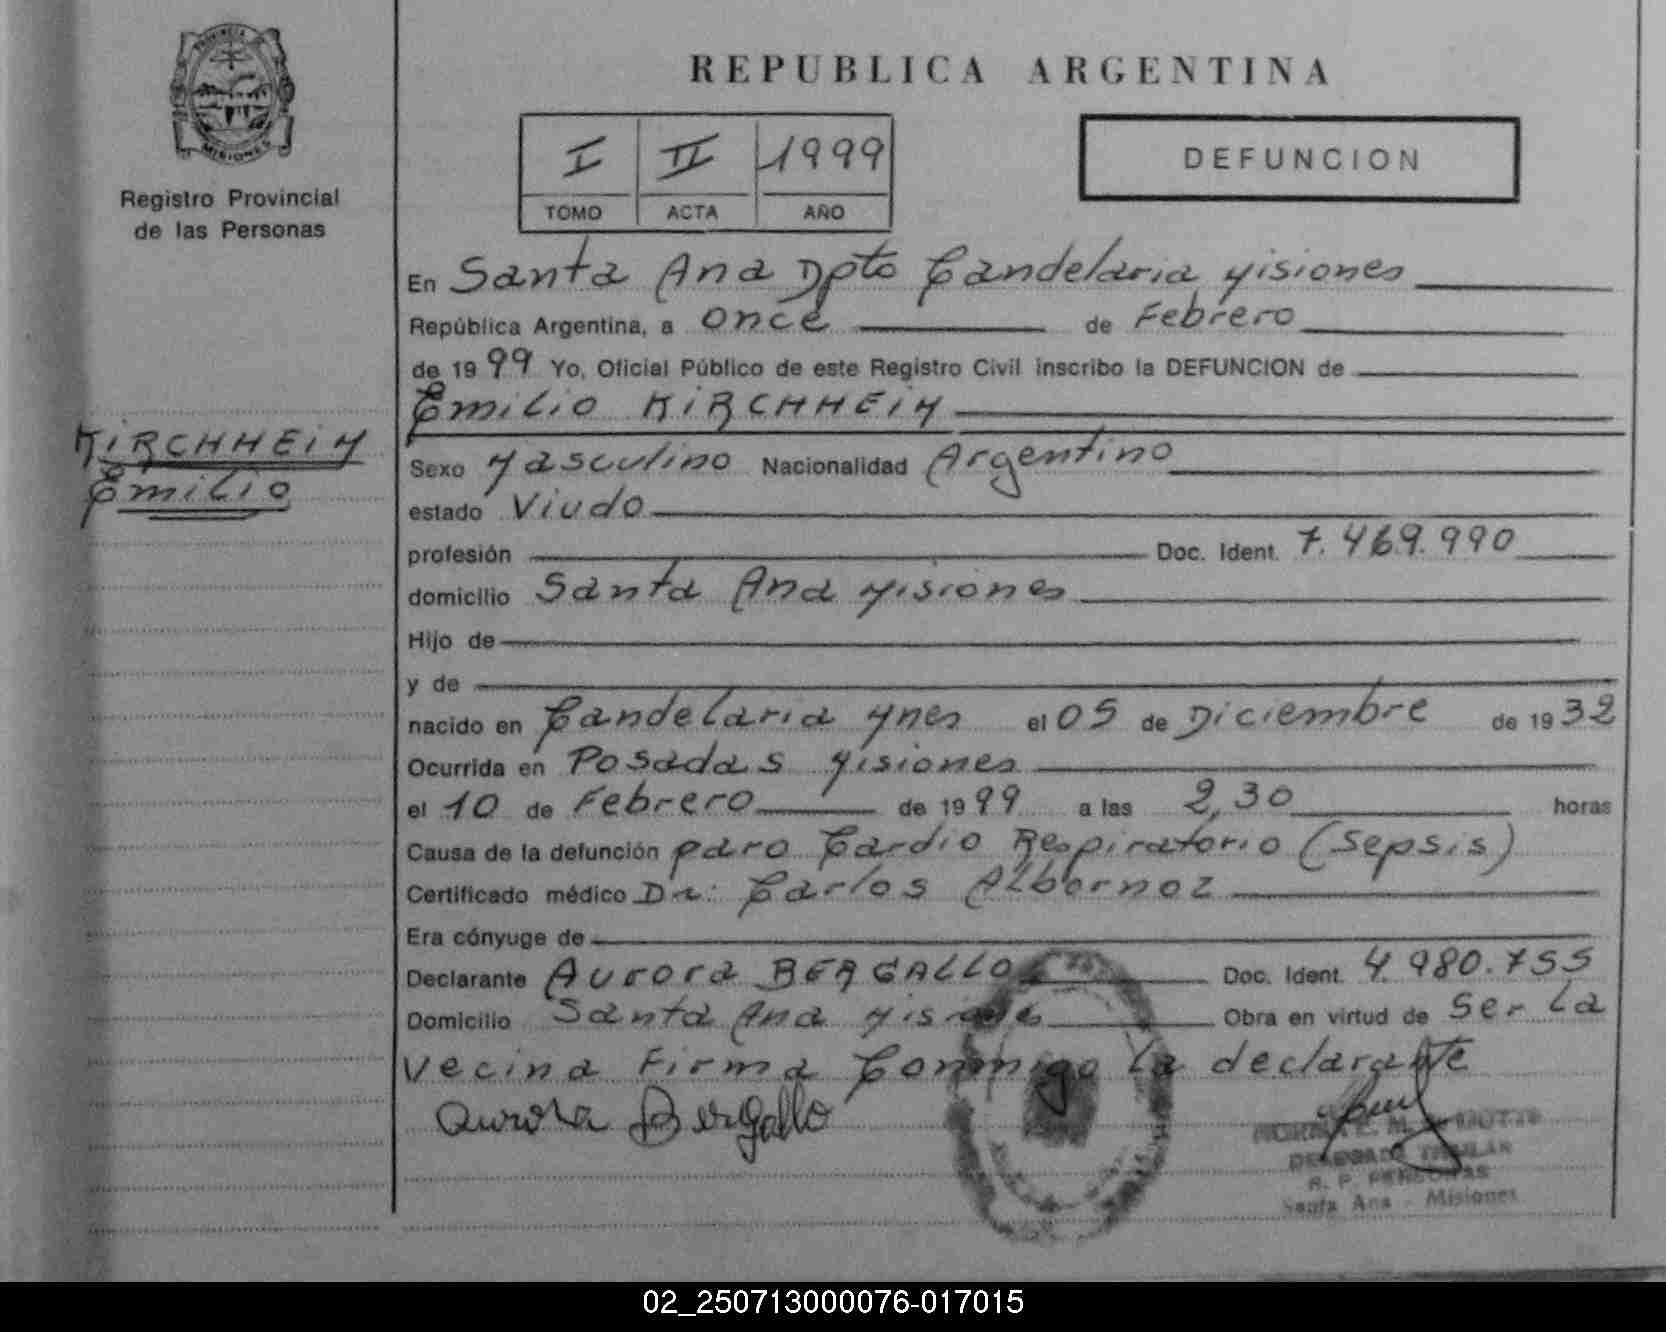 PROVINCIA
MISIONES
Registro Provincial
de las Personas
KIRCHHEIM
Emilio
REPUBLICA ARGENTINA
I II 1999
TOMO ACTA AÑO
DEFUNCION
En Santa Ana Dpto Candelaria Misiones
República Argentina, a once de Febrero
de 1999 Yo, Oficial Público de este Registro Civil inscribo la DEFUNCION de
Emilio KIRCHHEIM
Sexo Masculino Nacionalidad Argentino
estado Viudo
profesión Doc. Ident. 7.469.990
domicilio Santa Ana Misiones
Hijo de
y de
nacido en Candelaria Mnes el 05 de Diciembre de 1932
Ocurrida en Posadas Misiones
el 10 de Febrero de 1999 a las 2,30 horas
Causa de la defunción paro Cardio Respiratorio (Sepsis)
Certificado médico Dr: Carlos Albornoz
Era cónyuge de
Declarante Aurora BERGALLO Doc. Ident. 4.980.755
Domicilio Santa Ana Misiones Obra en virtud de Ser la
Vecina Firma Conmigo la declarante
Aurora Bergallo
DELEGADA TITULAR
R. P. PERSONAS
Santa Ana - Misiones
02_250713000076-017015